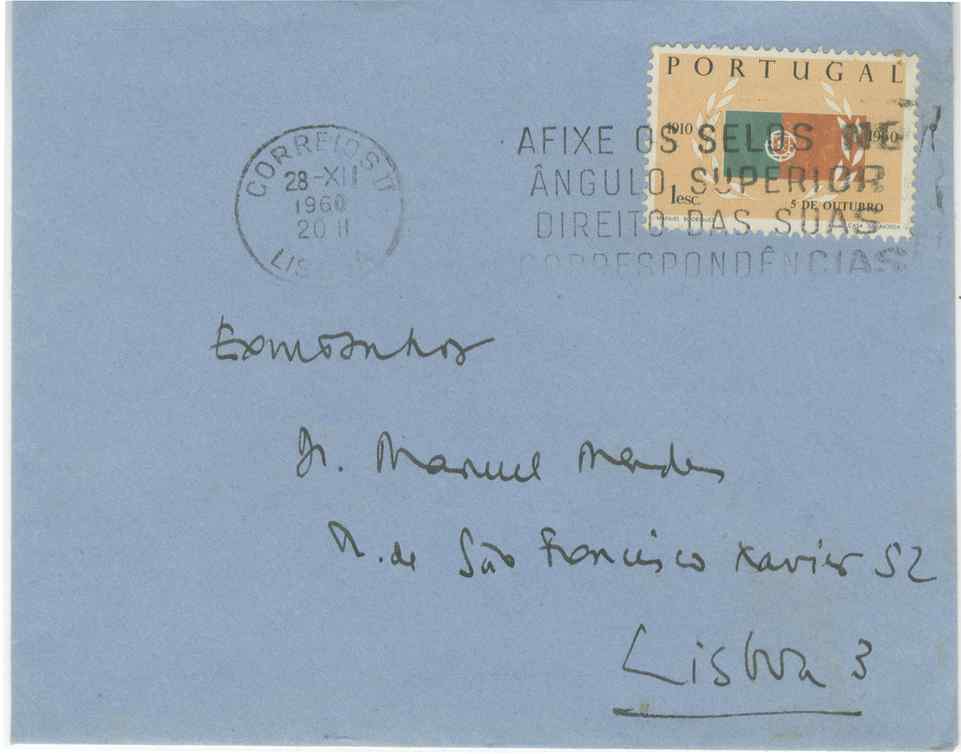 PORTUGAL
1910 1960
1 esc.
5 DE OUTUBRO
CORREIOS
28-XII
1960
20 H
AFIXE OS SELOS
ÂNGULO SUPERIOR
DIREITO DAS SUAS
CORRESPONDÊNCIAS
Exmo Senhor
Dr. Manuel Mendes
R. de São Francisco Xavier 52
Lisboa 3